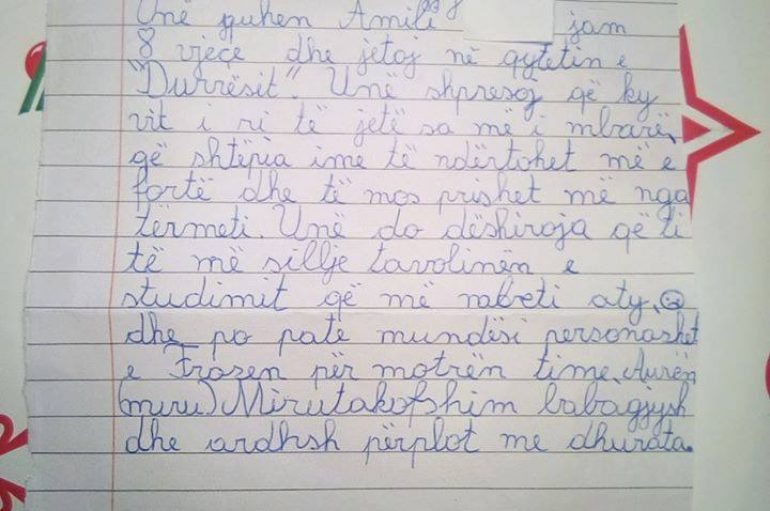 Unë quhem Amili jam
8 vjeçe dhe jetoj në qytetin e
"Durrësit". Unë shpresoj që ky
vit i ri të jetë sa më i mbarë,
që shtëpia ime të ndërtohet më e
fortë dhe të mos prishet më nga
tërmeti. Unë do dëshiroja që ti
të më sillje tavolinën e
studimit që më mbeti aty,☹
dhe po pate mundësi personazhet
e Frozen për motrën time, Aurën
(muru) Mirutakofshim babagjysh
dhe ardhsh përplot me dhurata.